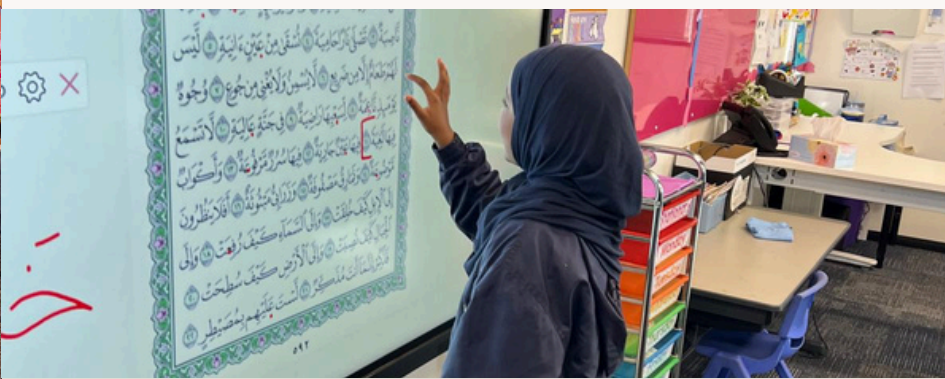 نَّاصِبَةٌ ۝٣ تَصْلَىٰ نَارًا حَامِيَةً ۝٤ تُسْقَىٰ مِنْ عَيْنٍ ءَانِيَةٍ ۝٥ لَّيْسَ
لَهُمْ طَعَامٌ إِلَّا مِن ضَرِيعٍ ۝٦ لَّا يُسْمِنُ وَلَا يُغْنِي مِن جُوعٍ ۝٧ وُجُوهٌ
يَوْمَئِذٍ نَّاعِمَةٌ ۝٨ لِّسَعْيِهَا رَاضِيَةٌ ۝٩ فِي جَنَّةٍ عَالِيَةٍ ۝١٠ لَّا تَسْمَعُ
فِيهَا لَٰغِيَةً ۝١١ فِيهَا عَيْنٌ جَارِيَةٌ ۝١٢ فِيهَا سُرُرٌ مَّرْفُوعَةٌ ۝١٣ وَأَكْوَابٌ
مَّوْضُوعَةٌ ۝١٤ وَنَمَارِقُ مَصْفُوفَةٌ ۝١٥ وَزَرَابِيُّ مَبْثُوثَةٌ ۝١٦ أَفَلَا يَنظُرُونَ
إِلَى ٱلْإِبِلِ كَيْفَ خُلِقَتْ ۝١٧ وَإِلَى ٱلسَّمَآءِ كَيْفَ رُفِعَتْ ۝١٨ وَإِلَى
ٱلْجِبَالِ كَيْفَ نُصِبَتْ ۝١٩ وَإِلَى ٱلْأَرْضِ كَيْفَ سُطِحَتْ ۝٢٠
فَذَكِّرْ إِنَّمَآ أَنتَ مُذَكِّرٌ ۝٢١ لَّسْتَ عَلَيْهِم بِمُصَيْطِرٍ ۝٢٢
٥٩٢
Monday